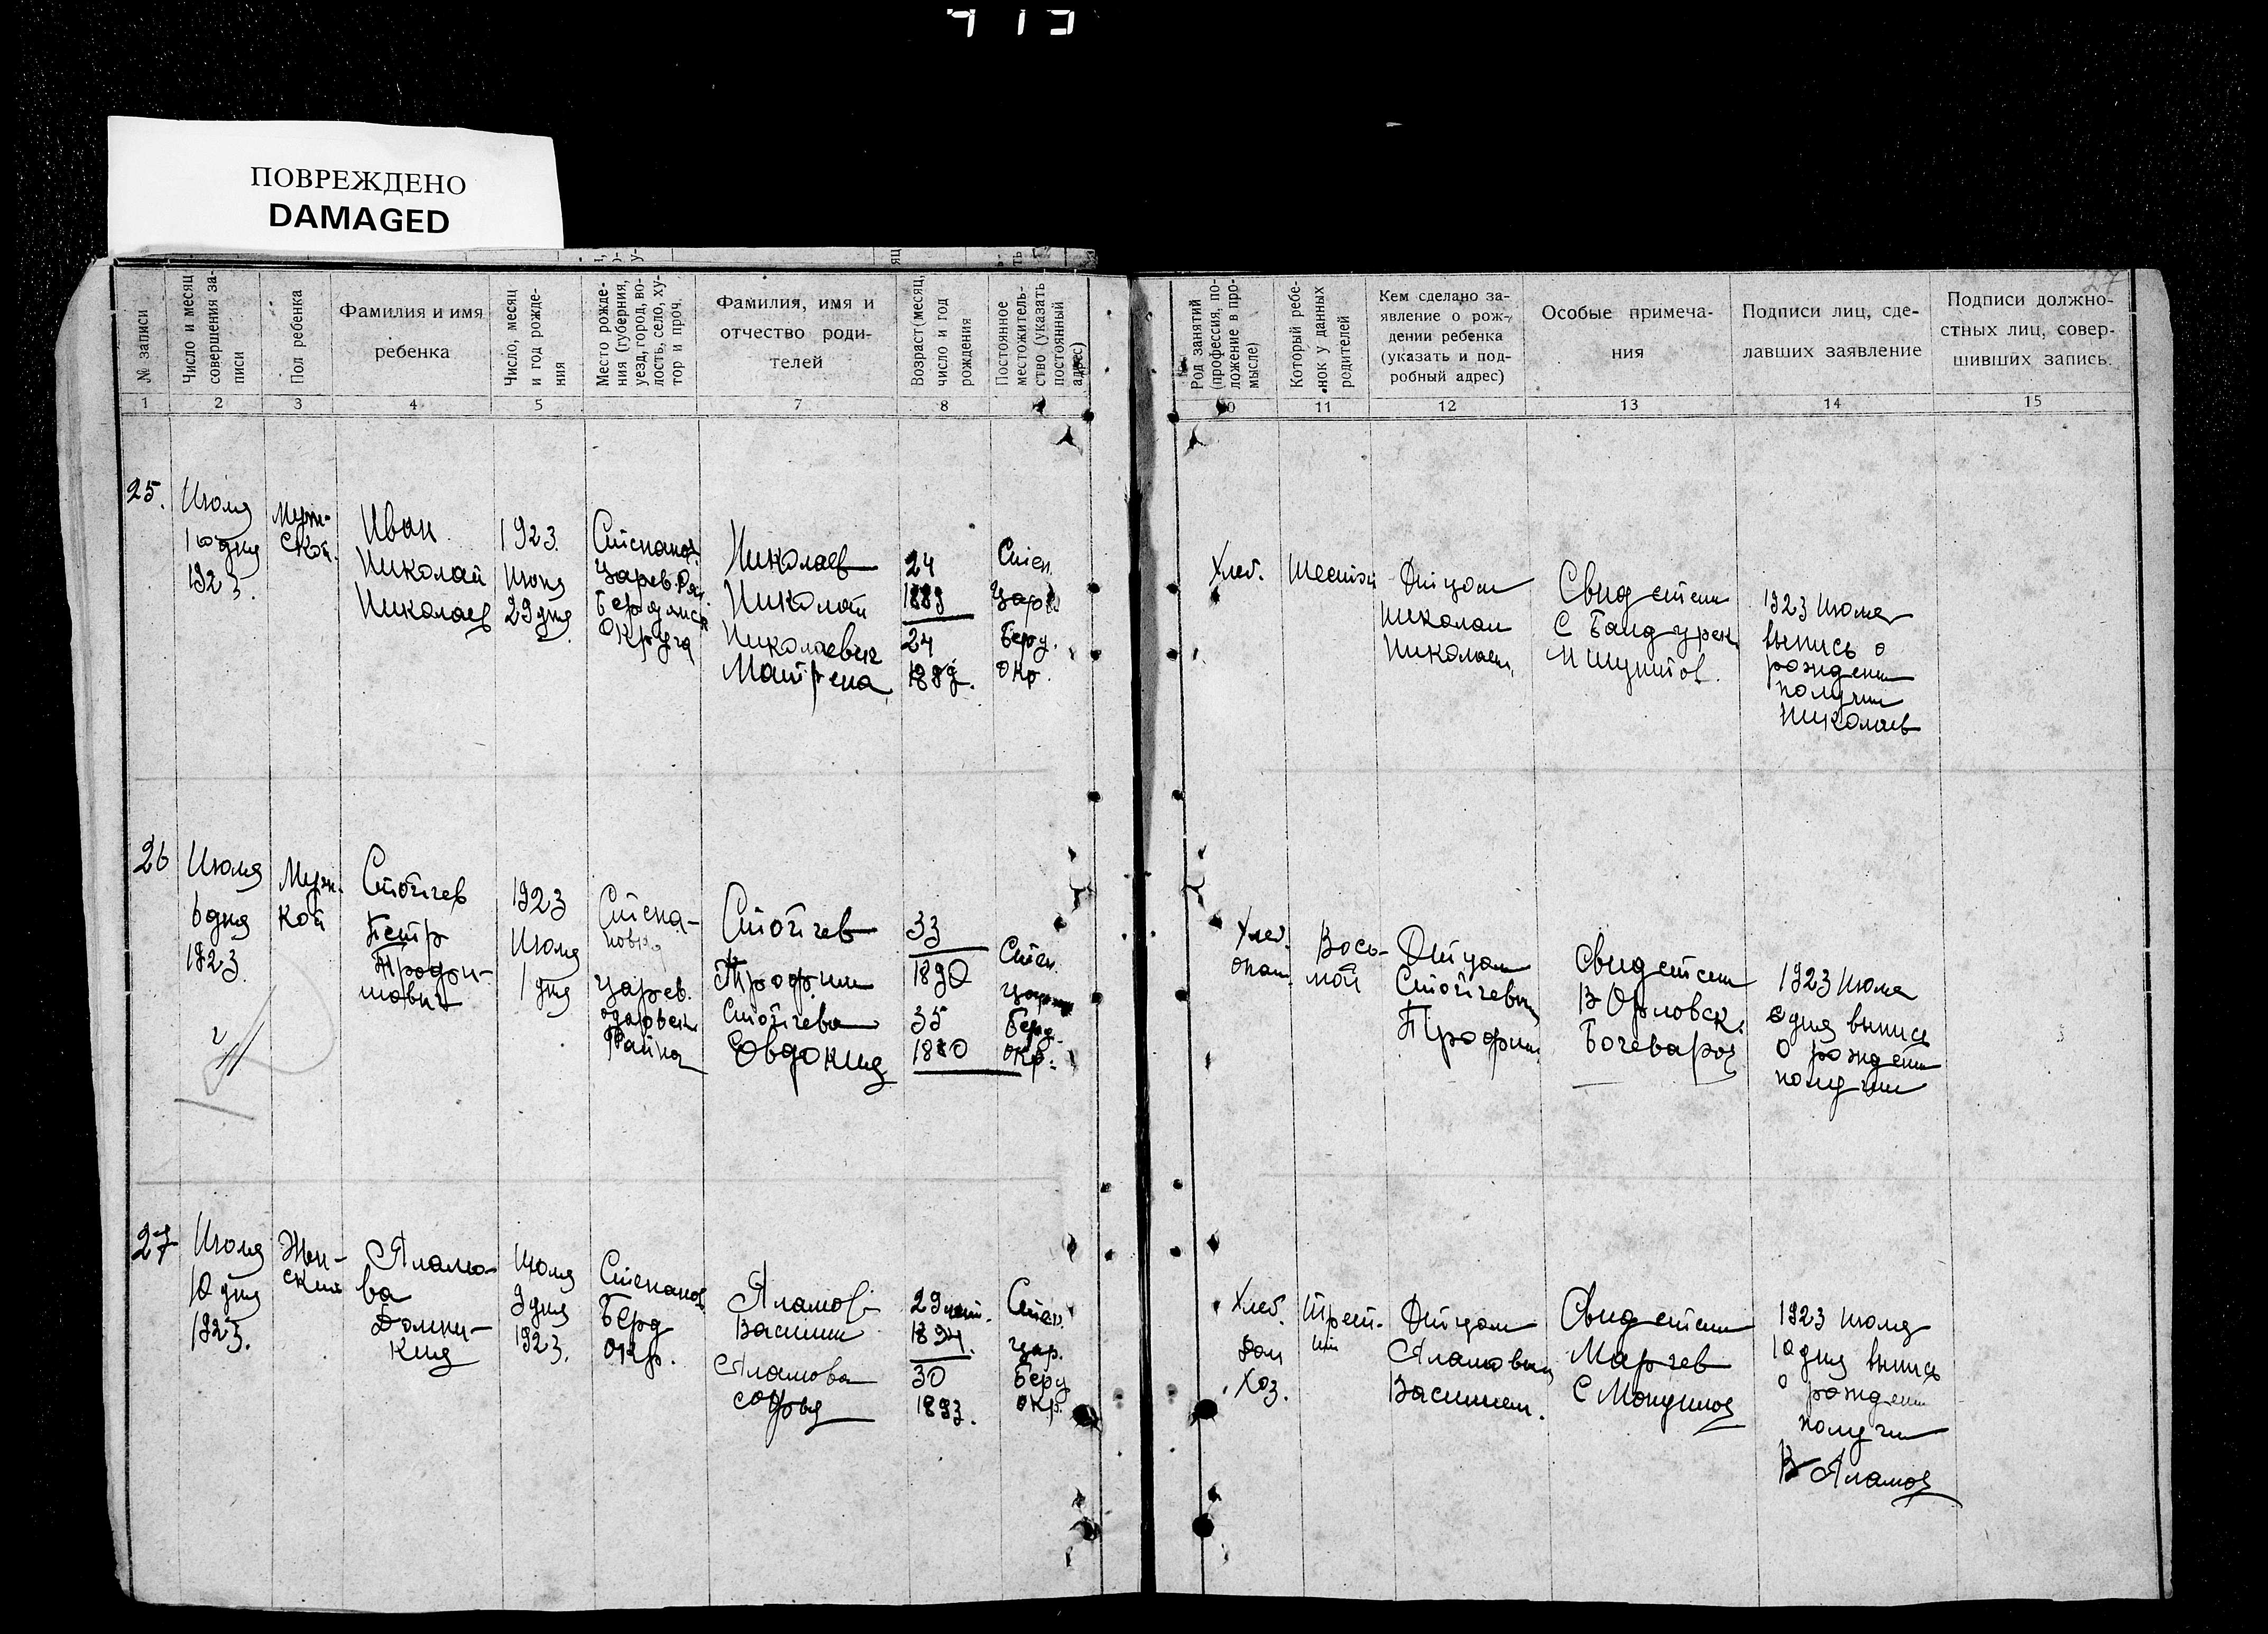 ПОВРЕЖДЕНО
DAMAGED
№ записи
Число и месяц
совершения за-
писи
Пол ребенка
Фамилия и имя
ребенка
Число, месяц
и год рожде-
ния
Место рожде-
ния (губерния,
уезд, город, во-
лость, село, ху-
тор и проч.
Фамилия, имя и
отчество роди-
телей
Возраст (месяц,
число и год
рождения
Постоянное
местожитель-
ство (указать
постоянный
адрес)
Род занятий
(профессия, по-
ложение в про-
мысле)
Который ребе-
нок у данных
родителей
Кем сделано за-
явление о рож-
дении ребенка
(указать и под-
робный адрес)
Особые примеча-
ния
Подписи лиц, сде-
лавших заявление
Подписи должно-
стных лиц, совер-
шивших запись.
27
1 2 3 4 5 7 8
11 12 13 14 15
25.
Июля
1го дня
1923.
Муж-
ской.
Иван
Николай
Николаев
1923.
Июня
29 дня
Степанов.
Царев. Рай.
Бердянск
Округа
Николаев
Николай
Николаевич
Матрена
24
24
Степ.
Царев
Берд.
окр.
Хлеб.
Шестой
Отцом
Николаем
Николаев.
Свидетели
1923 Июля
выпись о
рождении
получил
Николаев
26
Июля
6 дня
1923
Муж.
кой
Стойчев
Петр
Трофи-
мович
1923
Июля
1 дня
Степа-
новка
Царев.
Района
Стойчев
Трофим
Стойчева
Евдокия
33
1890
35
Степ.
Берд.
окр.
Хлеб.
Вось-
мой
Отцом
Стойчевым
Трофим.
Свидетели
В Орловск.
Бочеваров
1923 Июля
дня выпись
о рождении
получил
27
Июля
10 дня
1923.
Жен-
ский
Яламо-
ва
Домни-
кия
Июля
9 дня
1923.
Степанов.
Берд
окр.
Яламов
Василий
Яламова
Софья
29 лет.
1894.
30
1893.
Степ.
Цар.
Берд
окр.
Хлеб.
Дом
Хоз.
Трет-
ий
Отцом
Яламовым
Василием.
Свидетели
Марчев
1923 Июля
10 дня выпись
о рождении
получил
В Яламов